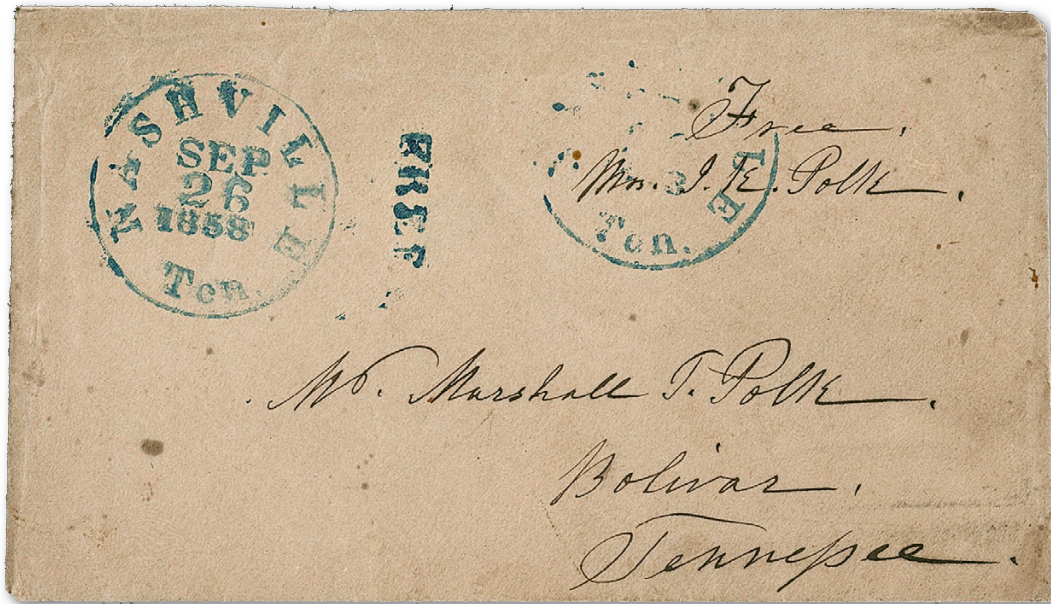 NASHVILLE
SEP
26
1858
Ten.
FREE
LE
Ten.
Free.
Mrs. J. K. Polk.
Mr. Marshall T. Polk.
Bolivar.
Tenneſsee.